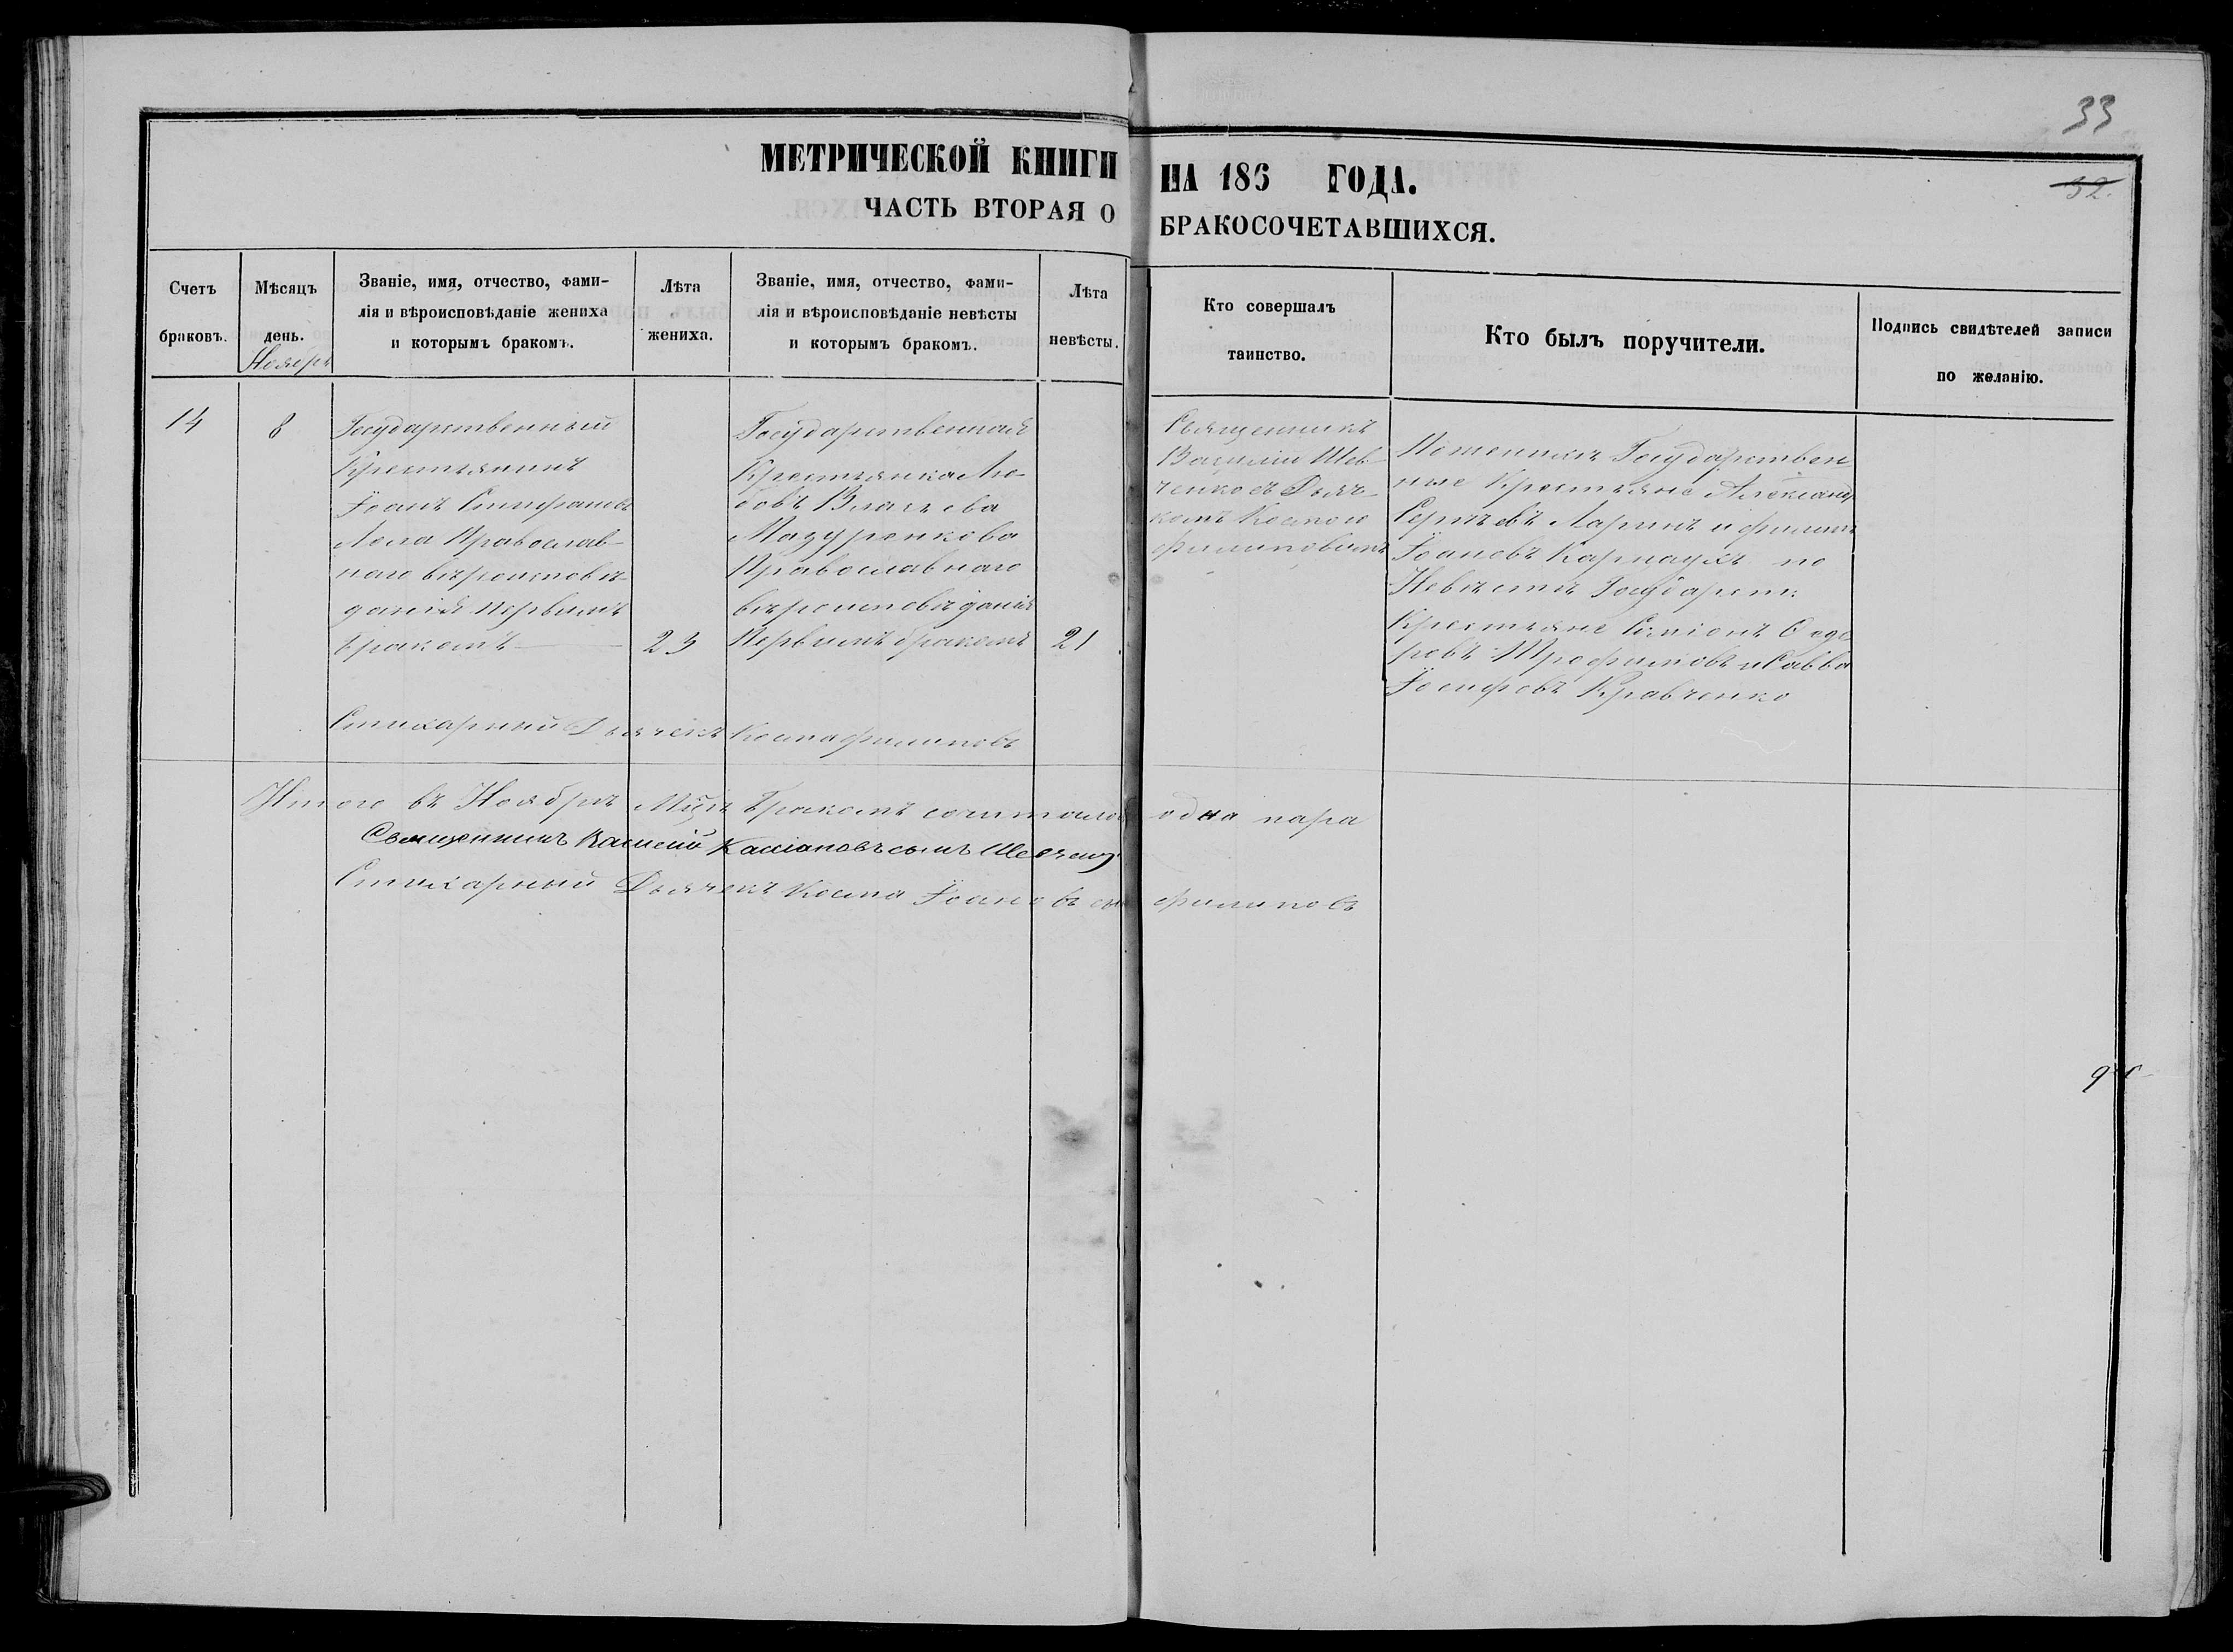 33
32.
МЕТРИЧЕСКОЙ КНИГИ НА 186 ГОДА.
ЧАСТЬ ВТОРАЯ О БРАКОСОЧЕТАВШИХСЯ.
Счетъ
браковъ.
Мѣсяцъ
день.
Ноябрь
Званіе, имя, отчество, фами-
лія и вѣроисповѣданіе жениха
и которымъ бракомъ.
Лѣта
жениха.
Званіе, имя, отчество, фами-
лія и вѣроисповѣданіе невѣсты
и которымъ бракомъ.
Лѣта
невѣсты.
Кто совершалъ
таинство.
Кто былъ поручители.
Подпись свидѣтелей записи
по желанію.
14
8
Государственный
Крестьянинъ
Іоанъ Стефановъ
Лела Православ-
наго вѣроисповѣ-
данія первымъ
бракомъ
23
Государственная
Крестьянка Лю-
бовь Власьева
Мазуренкова
Православнаго
вѣроисповѣданія
Первымъ бракомъ
21
Священникъ
Василій Шев-
ченко съ Дьяч-
комъ Космою
Филиповымъ
По женихѣ Государствен
ные Крестьяне Александ
Сергѣевъ Ларинъ и Филипъ
Іоановъ Карнаухъ по
Невѣстѣ Государст:
Крестьяне Симіонъ Ѳедо
ровъ Трофимовъ и Савва
Іосифовъ Кравченко
Стихарный Дьячекъ Косма Филиповъ
Итого въ Ноябрѣ Мцѣ Бракомъ сочеталось одна пара
Священникъ Василій Кассіановъ сынъ
Стихарный Дьячекъ Косма Іоановъ сынъ Филиповъ